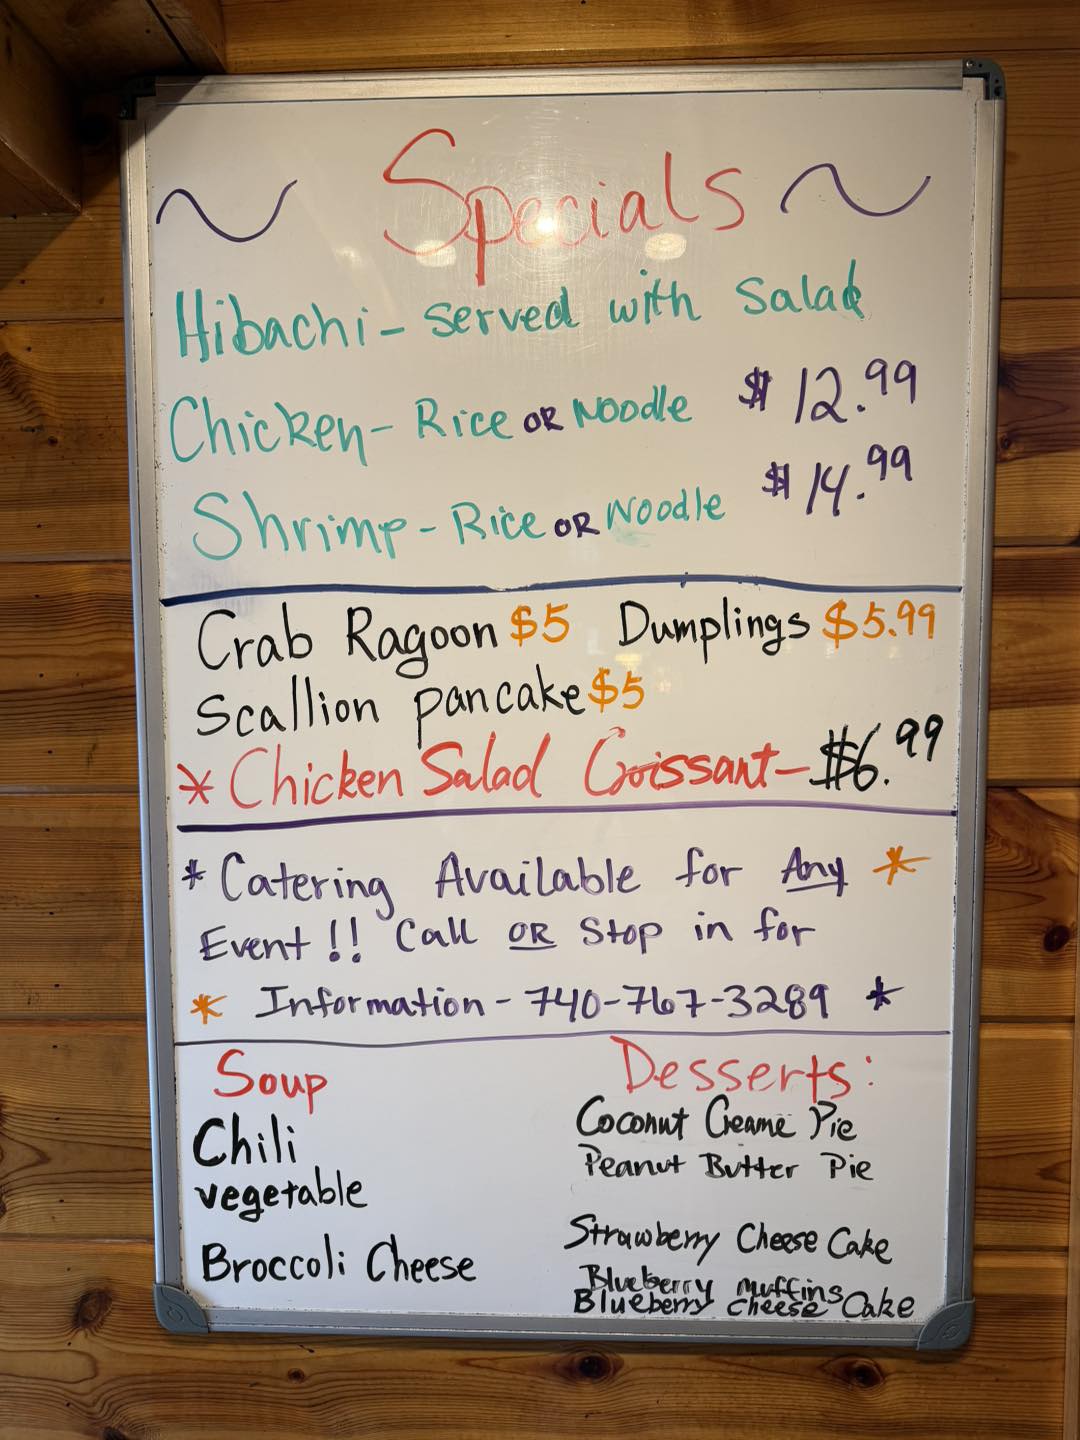 ~ Specials ~
Hibachi - served with Salad
Chicken - Rice OR Noodle $12.99
Shrimp - Rice OR Noodle $14.99
Crab Ragoon $5 Dumplings $5.99
Scallion pancake $5
* Chicken Salad Croissant - $6.99
* Catering Available for Any *
Event!! Call OR Stop in for
* Information - 740-767-3289 *
Soup
Chili
vegetable
Broccoli Cheese
Desserts:
Coconut Creame Pie
Peanut Butter Pie
Strawberry Cheese Cake
Blueberry muffins
Blueberry cheese Cake